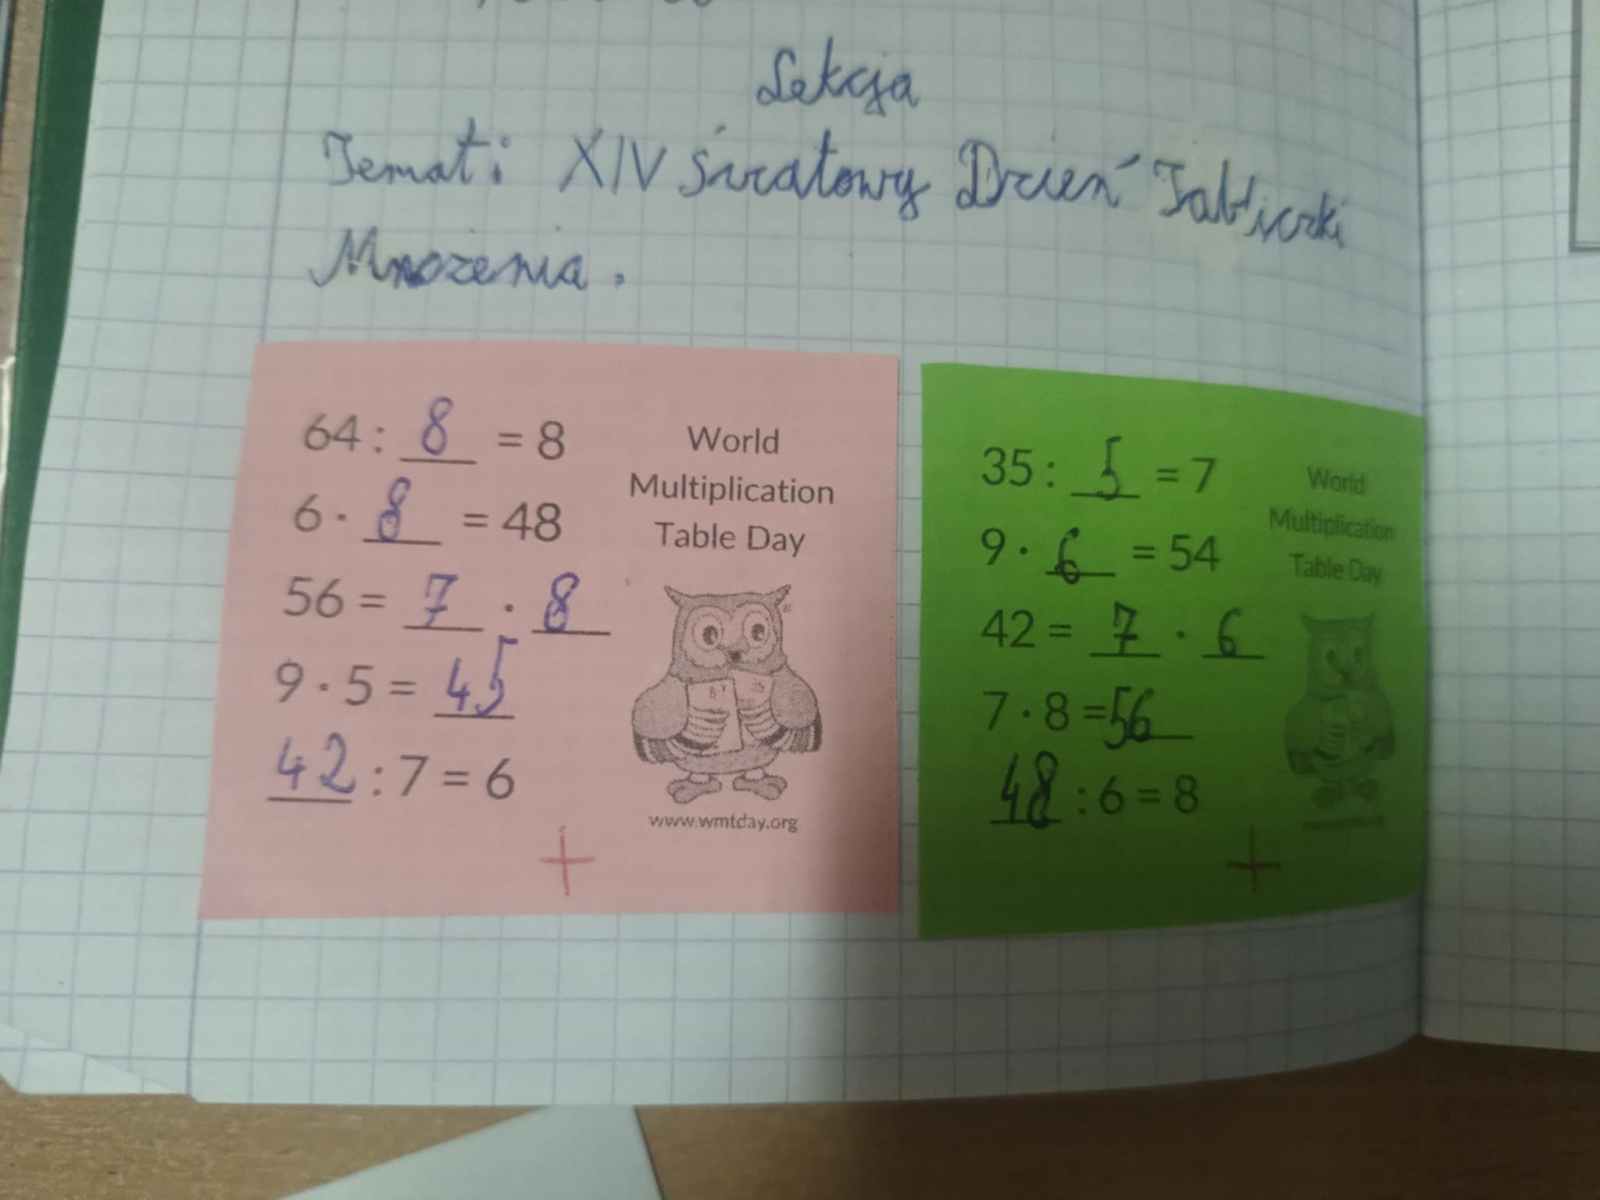 Lekcja
Temat: XIV Światowy Dzień Tabliczki
Mnożenia.
64 : 8 = 8
6 · 8 = 48
56 = 7 · 8
9 · 5 = 45
42 : 7 = 6
+
World
Multiplication
Table Day
www.wmtday.org
35 : 5 = 7
9 · 6 = 54
42 = 7 · 6
7 · 8 = 56
48 : 6 = 8
+
World
Multiplication
Table Day